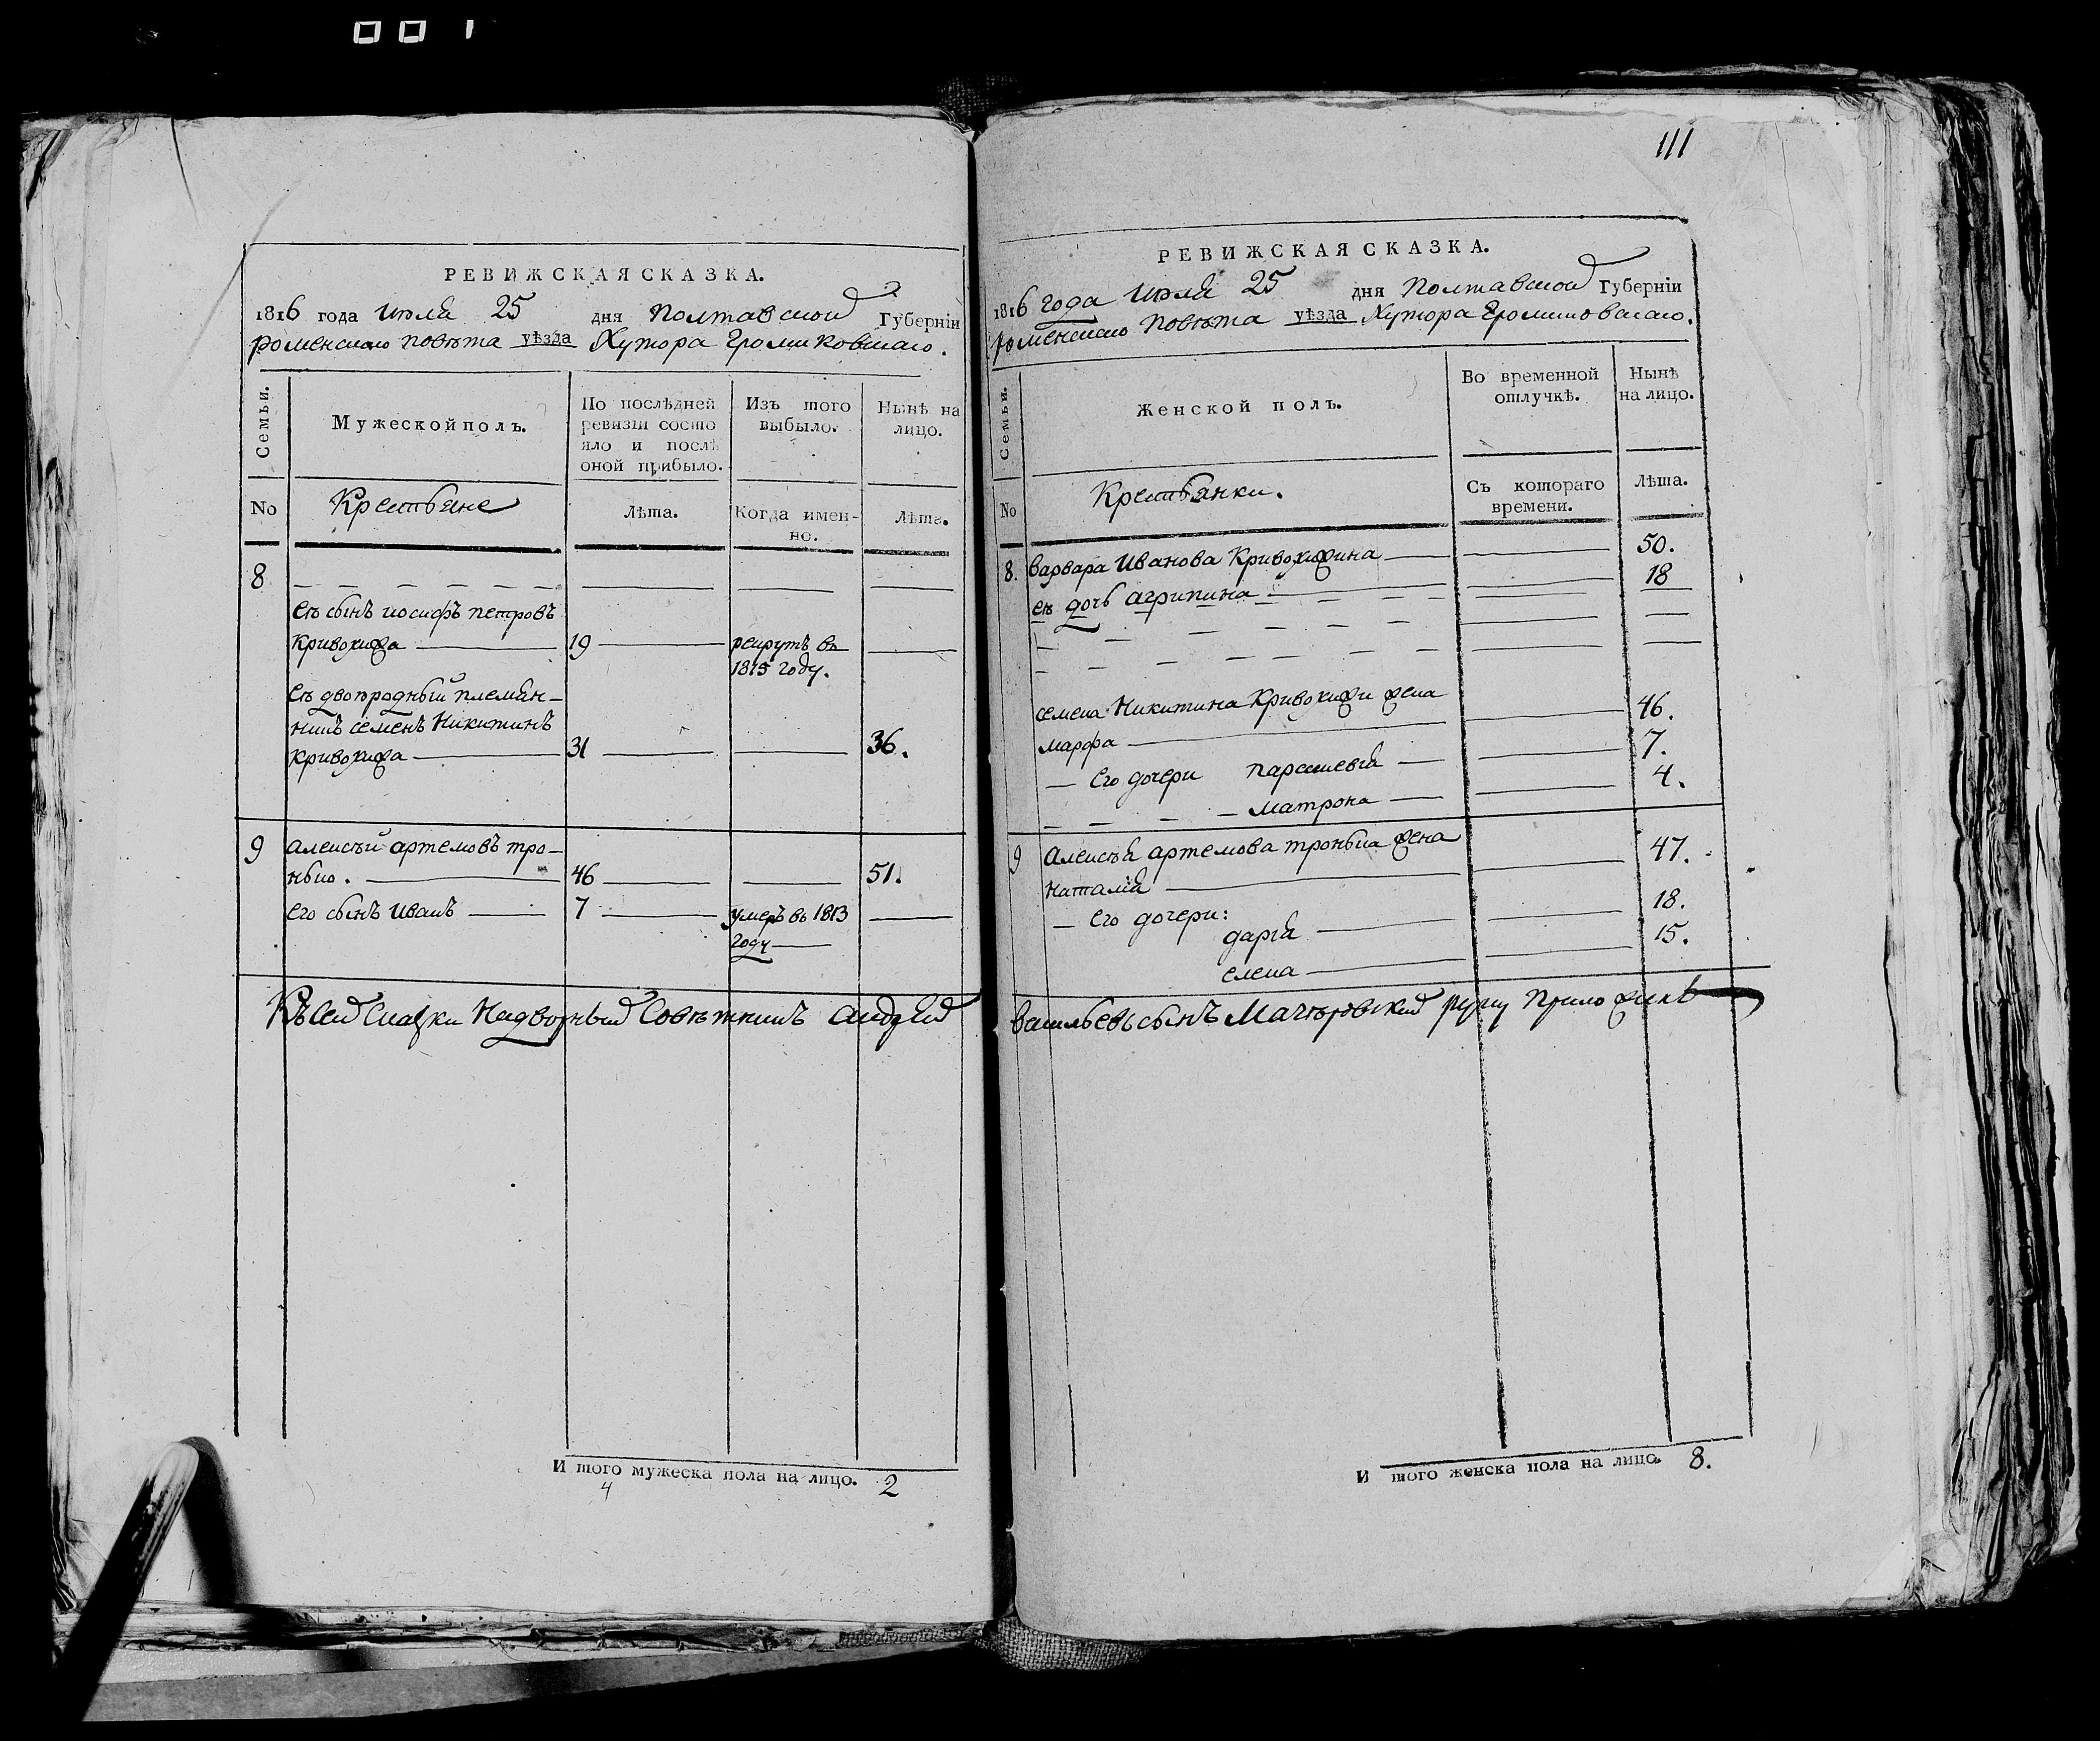 001
РЕВИЖСКАЯ СКАЗКА.
1816 года июля 25 дня Полтавской Губерніи
роменскаго повѣта уѣзда Хутора Громиковскаго.
Семьи.
Мужеской полъ.
По послѣдней ревизіи состояло и послѣ оной прибыло.
Изъ того выбыло.
Нынѣ на лицо.
No
Крестьяне
Лѣта.
Когда именно.
Лѣта.
8
еѣ сынъ иосифъ петровъ
Кривохижа 19 рекрутъ въ
1815 году.
еѣ двоюродный племян-
никъ семенъ Никитинъ
Кривохижа 31 36.
9 алексѣй артемовъ тро-
нько. 46 51.
его сынъ иванъ 7 умеръ въ 1813
году
Къ сей скаски Надворный Совѣтникъ андрей
И того мужеска пола на лицо. 2
4
111
РЕВИЖСКАЯ СКАЗКА.
1816 года июля 25 дня Полтавской Губерніи
роменскаго повѣта уѣзда Хутора Громиковскаго.
Семьи.
Женской полъ.
Во временной отлучкѣ.
Нынѣ на лицо.
No
Крестьянки.
Съ котораго времени.
Лѣта.
8. варвара иванова Кривохижина 50.
еѣ дочь агрипина 18
семена Никитина Кривохижи жена
марфа 46.
его дочери параскевія 7.
матрона 4.
9 алексѣя артемова тронька жена
наталія 47.
его дочери:
дарія 18.
елена 15.
васильевъ сынъ руку приложилъ
И того женска пола на лицо. 8.